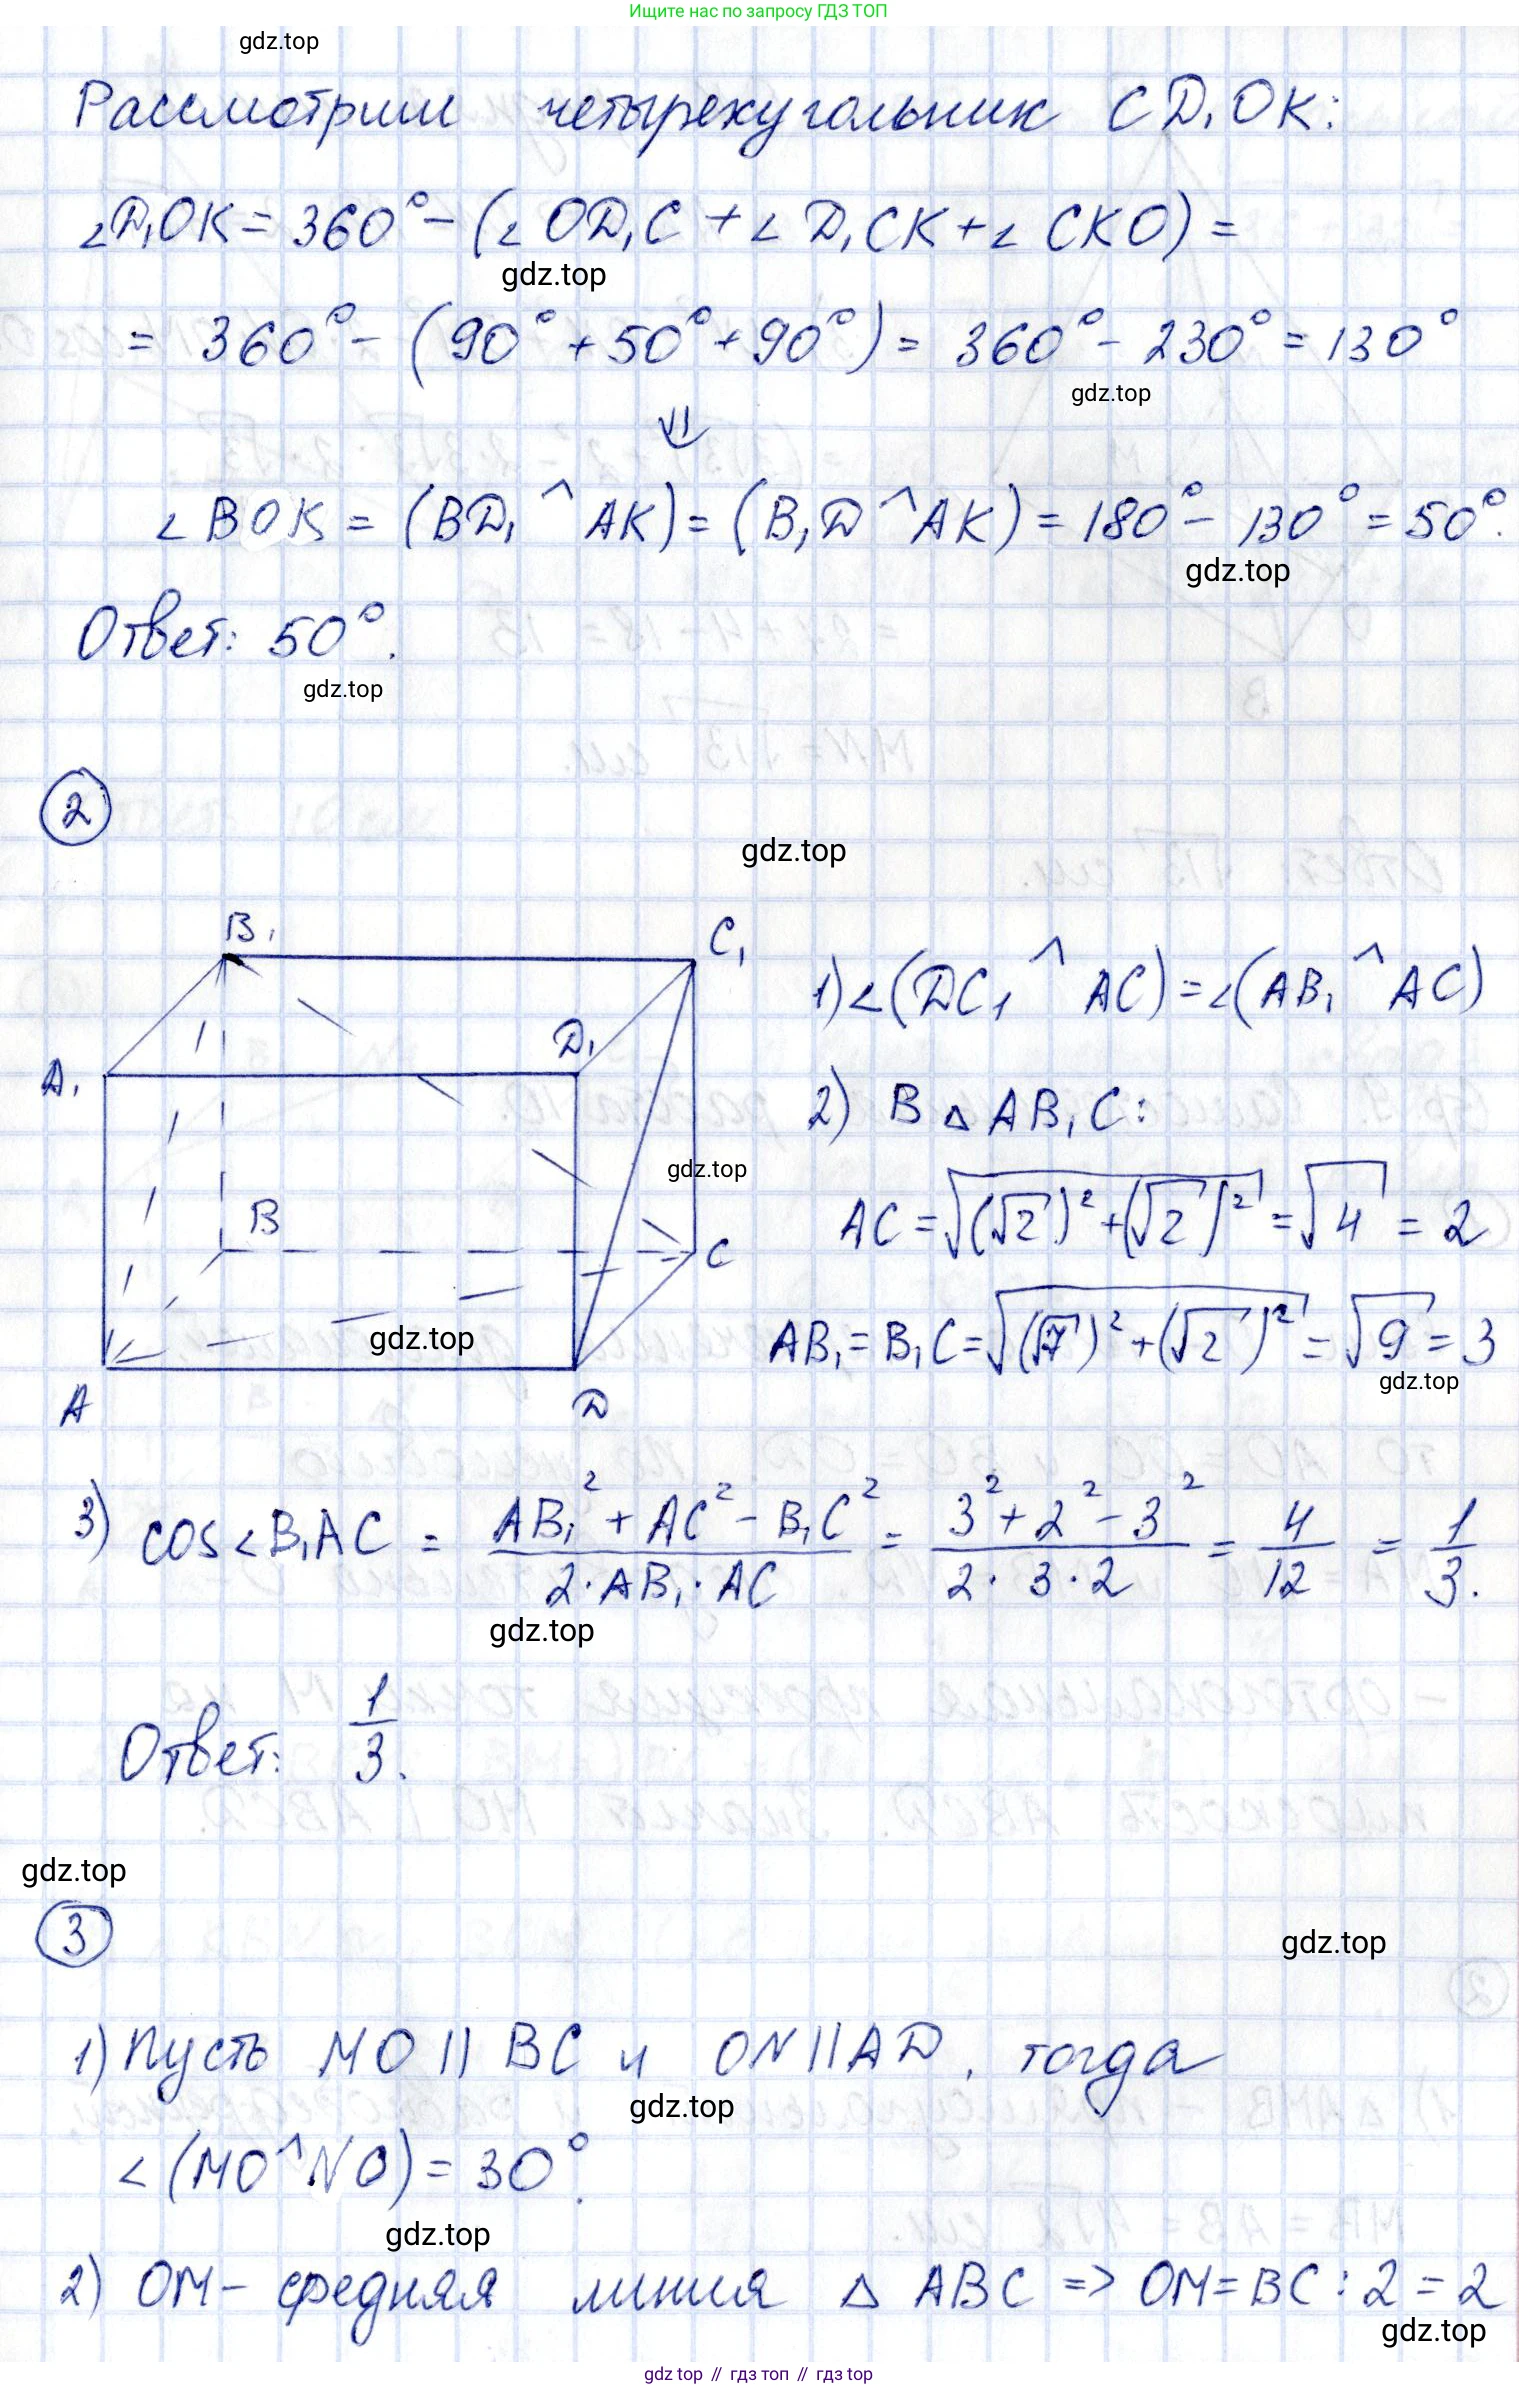 Ищите нас по запросу ГДЗ ТОП
gdz.top
Рассмотрим четырехугольник CD₁OK:
∠D₁OK = 360° - (∠OD₁C + ∠D₁CK + ∠CKO) =
gdz.top
= 360° - (90° + 50° + 90°) = 360° - 230° = 130°
gdz.top
⇓
∠BOK = (BD₁ ^ AK) = (B₁D ^ AK) = 180° - 130° = 50°.
gdz.top
Ответ: 50°.
gdz.top
2
gdz.top
B₁
C₁
D₁
A₁
B
C
A
D
gdz.top
gdz.top
1) ∠(DC₁ ^ AC) = ∠(AB₁ ^ AC)
2) В △AB₁C:
AC = √((√2)² + (√2)²) = √4 = 2
AB₁ = B₁C = √((√7)² + (√2)²) = √9 = 3
gdz.top
3) cos∠B₁AC = (AB₁² + AC² - B₁C²)/(2·AB₁·AC) = (3² + 2² - 3²)/(2·3·2) = 4/12 = 1/3.
gdz.top
Ответ: 1/3.
gdz.top
3
gdz.top
1) Пусть MO || BC и ON || AD, тогда
gdz.top
∠(MO ^ NO) = 30°.
gdz.top
2) OM - средняя линия △ABC => OM = BC : 2 = 2
gdz.top
gdz top // гдз топ // гдз top